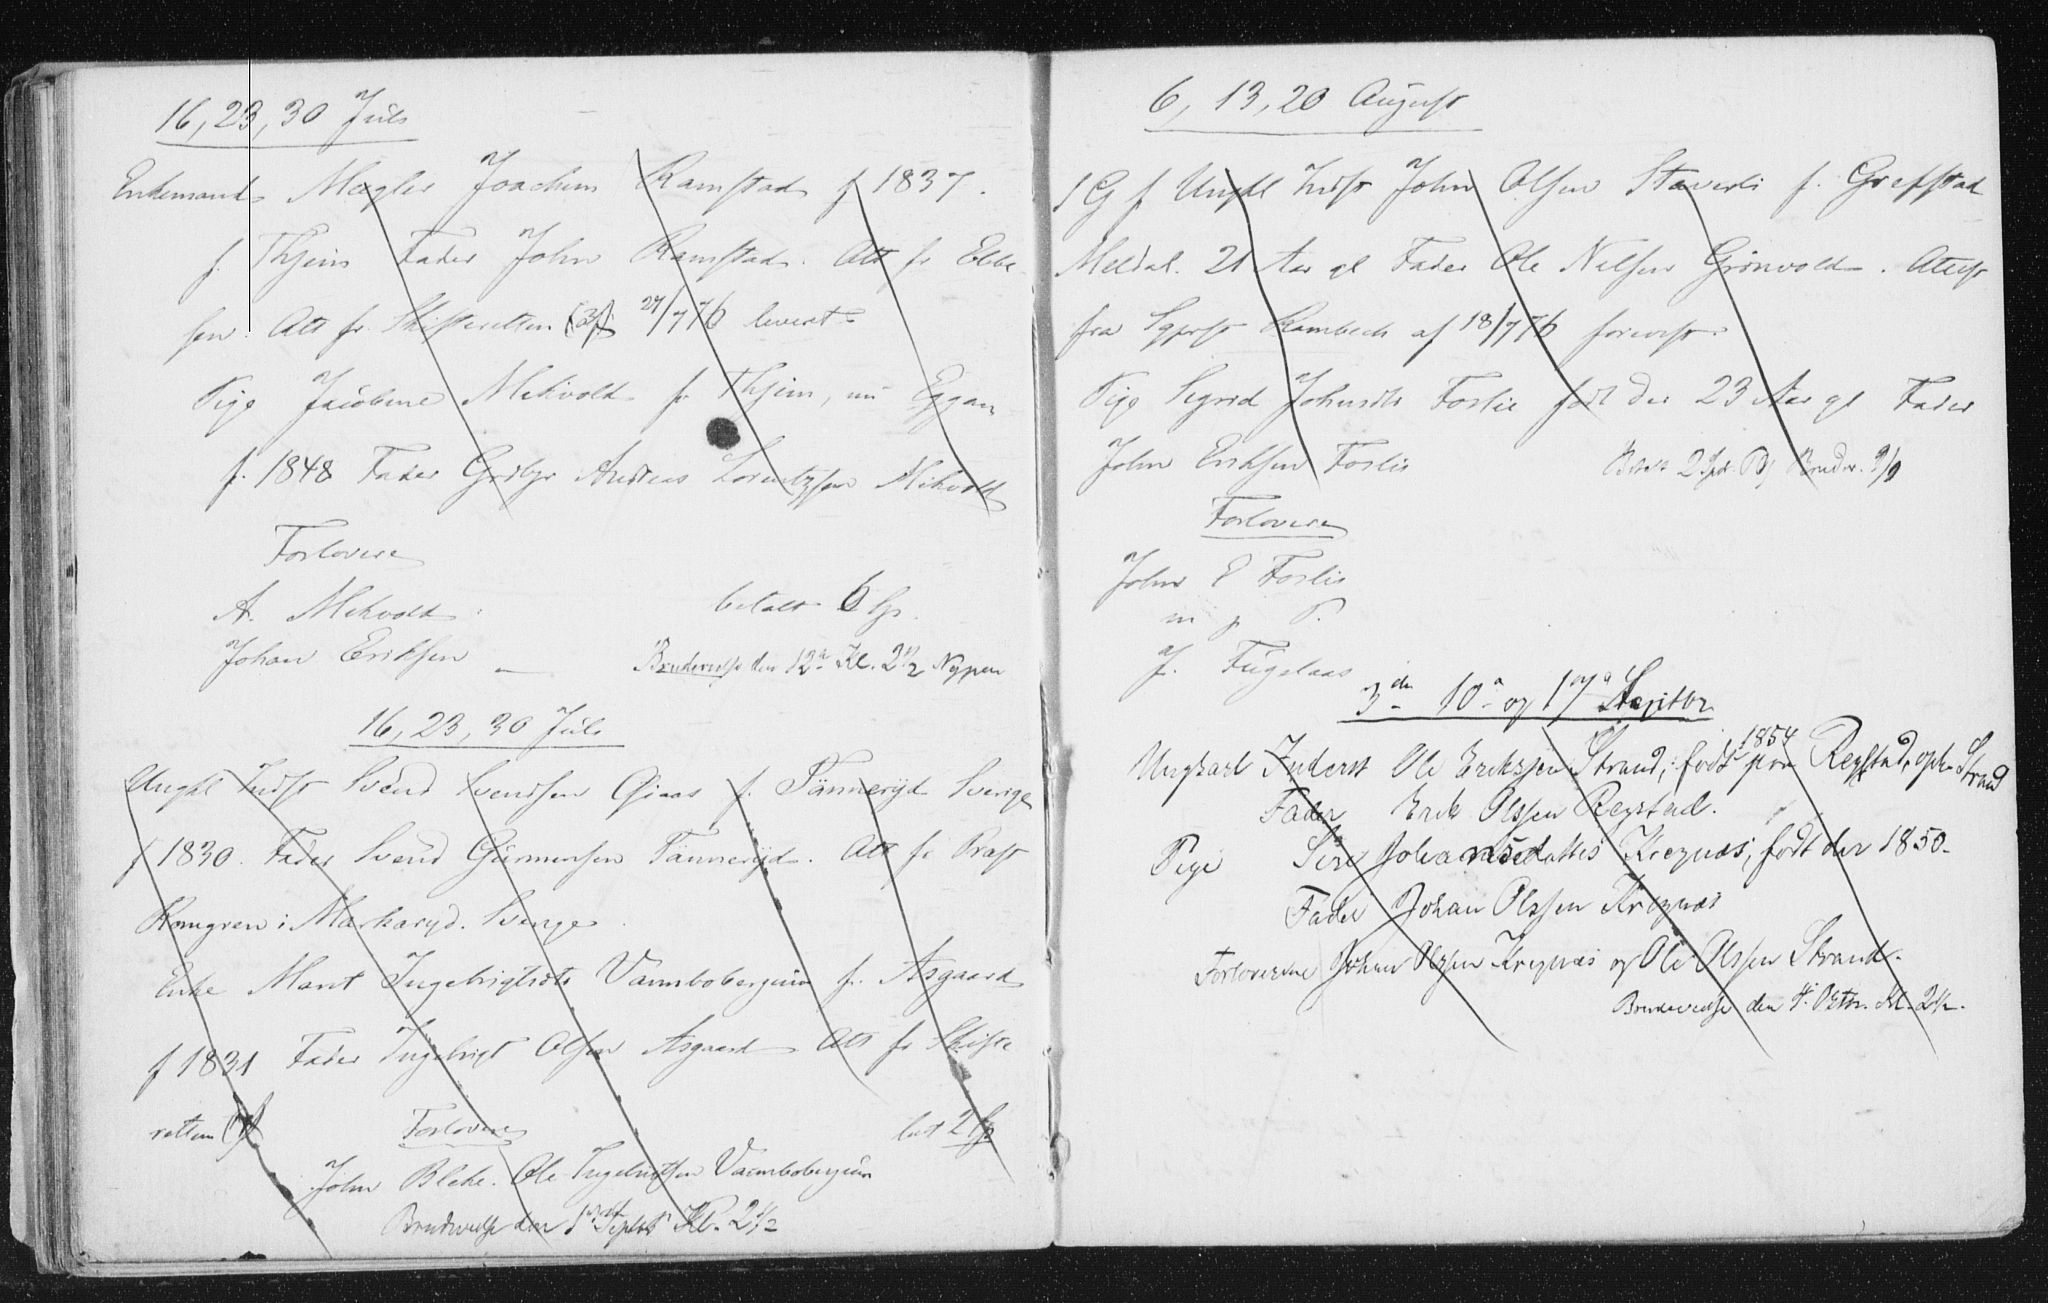 16, 23, 30 Juli
Enkemand Mægler Joachim Ramstad f 1837.
f. Thjem Fader John Ramstad. Att fr Ebbe-
sen. Att fr. Skifteretten (3/ 27/7 76 leveret
Pige Jacobine Mehvold fr Thjem, nu Eggan
f. 1848 Fader Grdbgr Andreas Lorentzsen Mehvold
Forlovere
A. Mehvold
betalt 6
Johan Eriksen
Brudevielse den 12te Kl. 2 1/2 Nypan
16, 23, 30 Juli
Ungkl Indst Svend Svendsen Giaas f. Tänneryd Sverige
f 1830. Fader Svend Gummesen Tänneryd. Att fr Præst
Romgren i Markaryd. Sverige
Enke Marit Ingebrigtsdt Vambobergein fr. Asgaard
f 1831 Fader Ingebrigt Olsen Asgaard Att fr Skifte
retten
Forlovere
John Bleke. Ole Ingebrigtsen Vambobergein
Brudevielse den 1ste Septbr Kl. 2 1/2
6, 13, 20 August
Ungkl Indst John Olsen Staverli f. Grefstad
Meldal. 21 Aar gl Fader Ole Nilsen Grönvold. Attest
fra Sgprst Rambech af 18/7 76 forevist
Pige Sigrid Johnsdt Forlie født der 23 Aar gl Fader
John Eriksen Forlie
Betalt 2 Spd. Brudev. 9/9
Forlovere
John E Forlie
m p P.
J. Fuglaas
3die 10de og 17de Septbr
Ungkarl Inderst Ole Eriksen Strand, født 1854 paa Regstad, oph. Strand
Fader Erik Olssen Regstad.
Pige Siri Johansdatter Kregnæs, født der 1850.
Fader Johan Olssen Kregnæs
Forloverne Johan Olssen Kregnæs og Ole Olssen Strand.
Brudevielse den 4. Oktbr. Kl. 2 1/2.